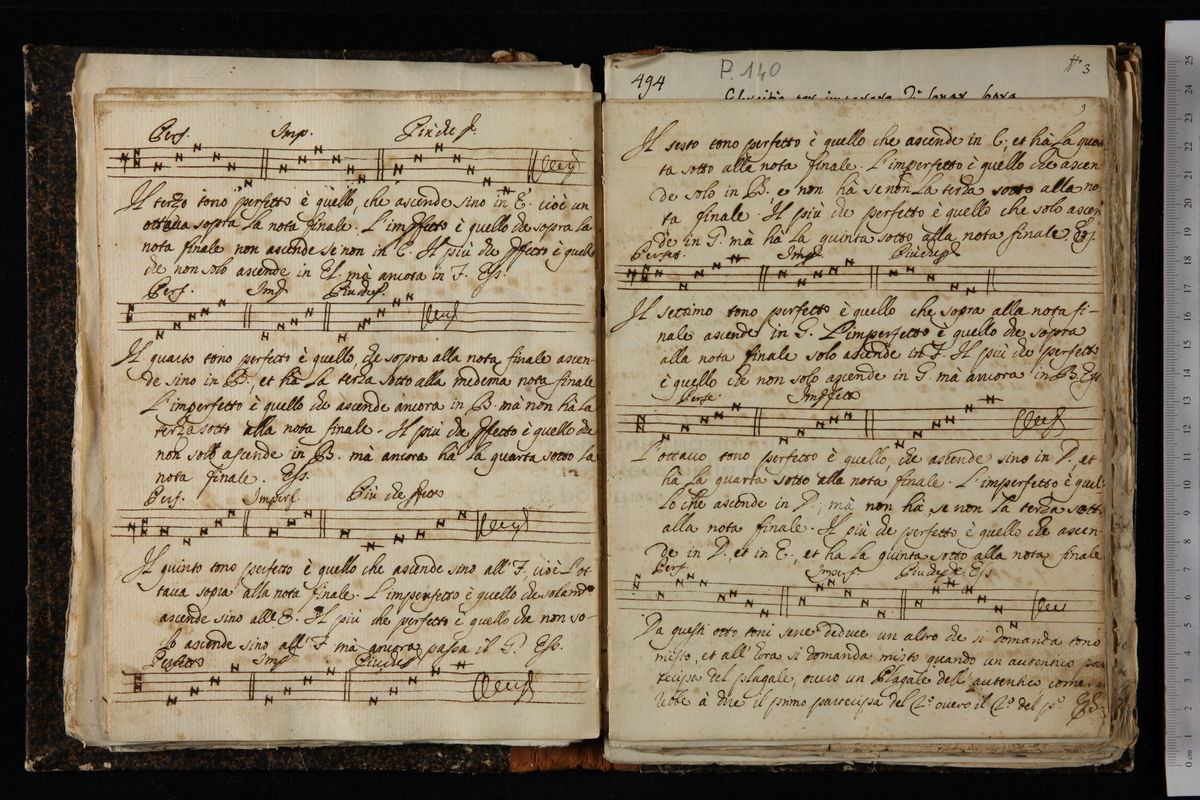 Perf. Imp. Più che p.
Il terzo tono perfetto è quello, che ascende sino in E. cioè un
ottava sopra la nota finale. L'impffetto è quello che sopra la
nota finale non ascende se non in C. Il più che pffetto è quello
che non solo ascende in E. mà ancora in F. Ess.
Perf. Impf. Più chef.
Il quarto tono perfetto è quello che sopra alla nota finale ascen-
de sino in B. et hà la terza sotto alla medema nota finale
L'imperfetto è quello che ascende ancora in B. mà non hà la
terza sotto alla nota finale. Il più che pffetto è quello che
non solo ascende in B. mà ancora hà la quarta sotto la
nota finale. Ess.
Perf. Imperf. Più che pffetto
Il quinto tono perfetto è quello che ascende sino all'F, cioè l'ot
tava sopra alla nota finale. L'imperfetto è quello che solamte
ascende sino alle D. Il più che perfetto è quello che non so-
lo ascende sino all'F mà ancora passa il G. Ess.
Perfetto Impf Più chef
494 P. 140 3
per imparare di sonar sopra
Il sesto tono perfetto è quello che ascende in C, et hà la quar
ta sotto alla nota finale. L'imperfetto è quello che ascen
de solo in B. e non hà se non la terza sotto alla no
ta finale. Il più che perfetto è quello che solo ascen
de in D. mà hà la quinta sotto alla nota finale Ess.
Perfet. Impf. Più che pf
Il settimo tono perfetto è quello che sopra alla nota fi-
nale ascende in G. L'imperfetto è quello che sopra
alla nota finale solo ascende in F. Il più che perfetto
è quello che non solo ascende in G. mà ancora in B. Ess
Perfe Impffetto
L'ottavo tono perfetto è quello, che ascende sino in D, et
hà la quarta sotto alla nota finale. L'imperfetto è quel
lo che ascende in D, mà non hà, se non la terza sotto
alla nota finale. Il più che perfetto è quello che ascen-
de in D. et in E, et hà la quinta sotto alla nota finale
Perf. Imperf. Più che p. Ess
Da questi otto toni sene deduce un altro che si domanda tono
misto, et all'hora si domanda misto quando un autentico par
tecipa del plagale, overo un Plagale dell'autentico come sa
rebbe à dire il primo partecipa del 2.º overo il 2.º del p.º Ess.